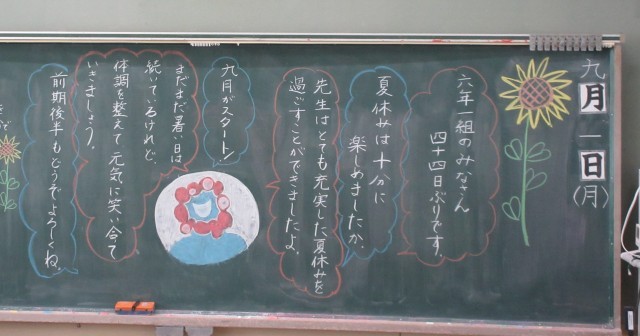 九月一日(月)
六年一組のみなさん
四十四日ぶりです。
夏休みは十分に
楽しめましたか。
先生はとても充実した夏休みを
過ごすことができましたよ。
九月がスタート!
まだまだ暑い日は
続いているけれど、
体調を整えて元気に笑い合って
いきましょう。
前期後半もどうぞよろしくね。